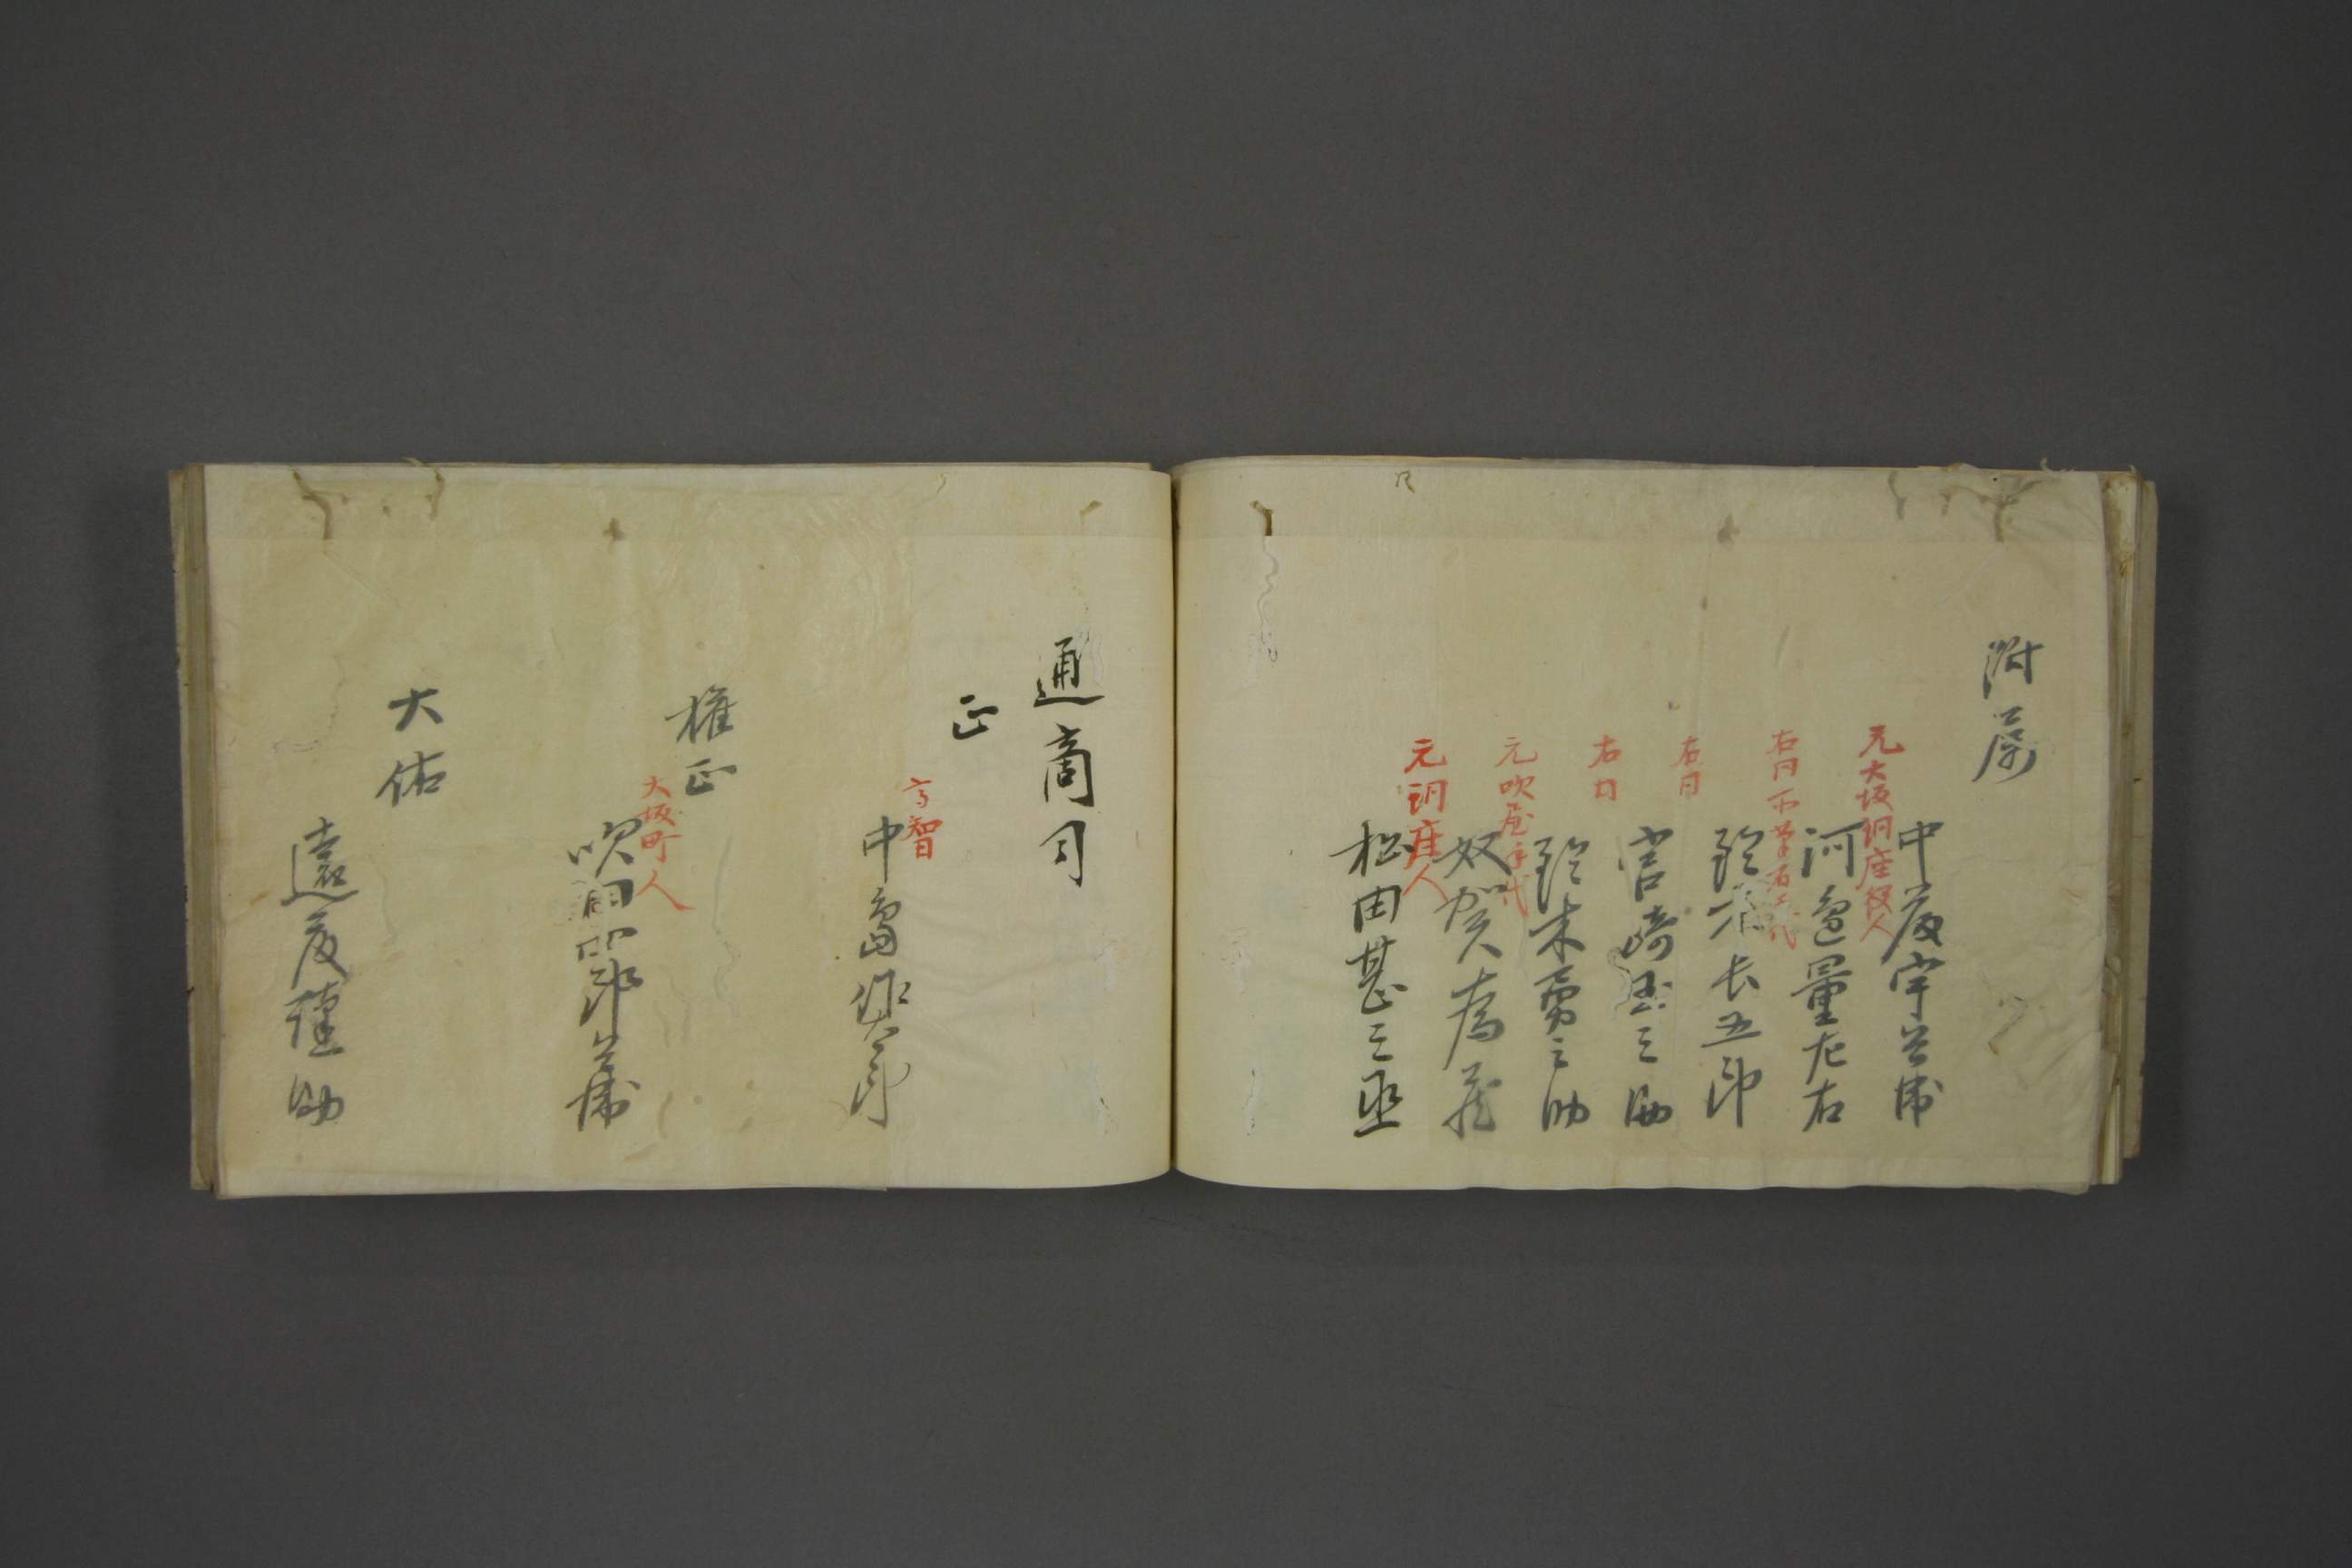 附属
元大坂銅座役人
中庭宇兵衛
右同
河邉量左右
右同
鈴木長五郎
右同
宮崎圭三助
鈴木勇之助
元吹屋手代
奴賀為蔵
元銅座人
松田甚三丞
通商司
正
高智
中島作太郎
権正
大坂町人
吹田四郎兵衛
大佑
遠藤謹助